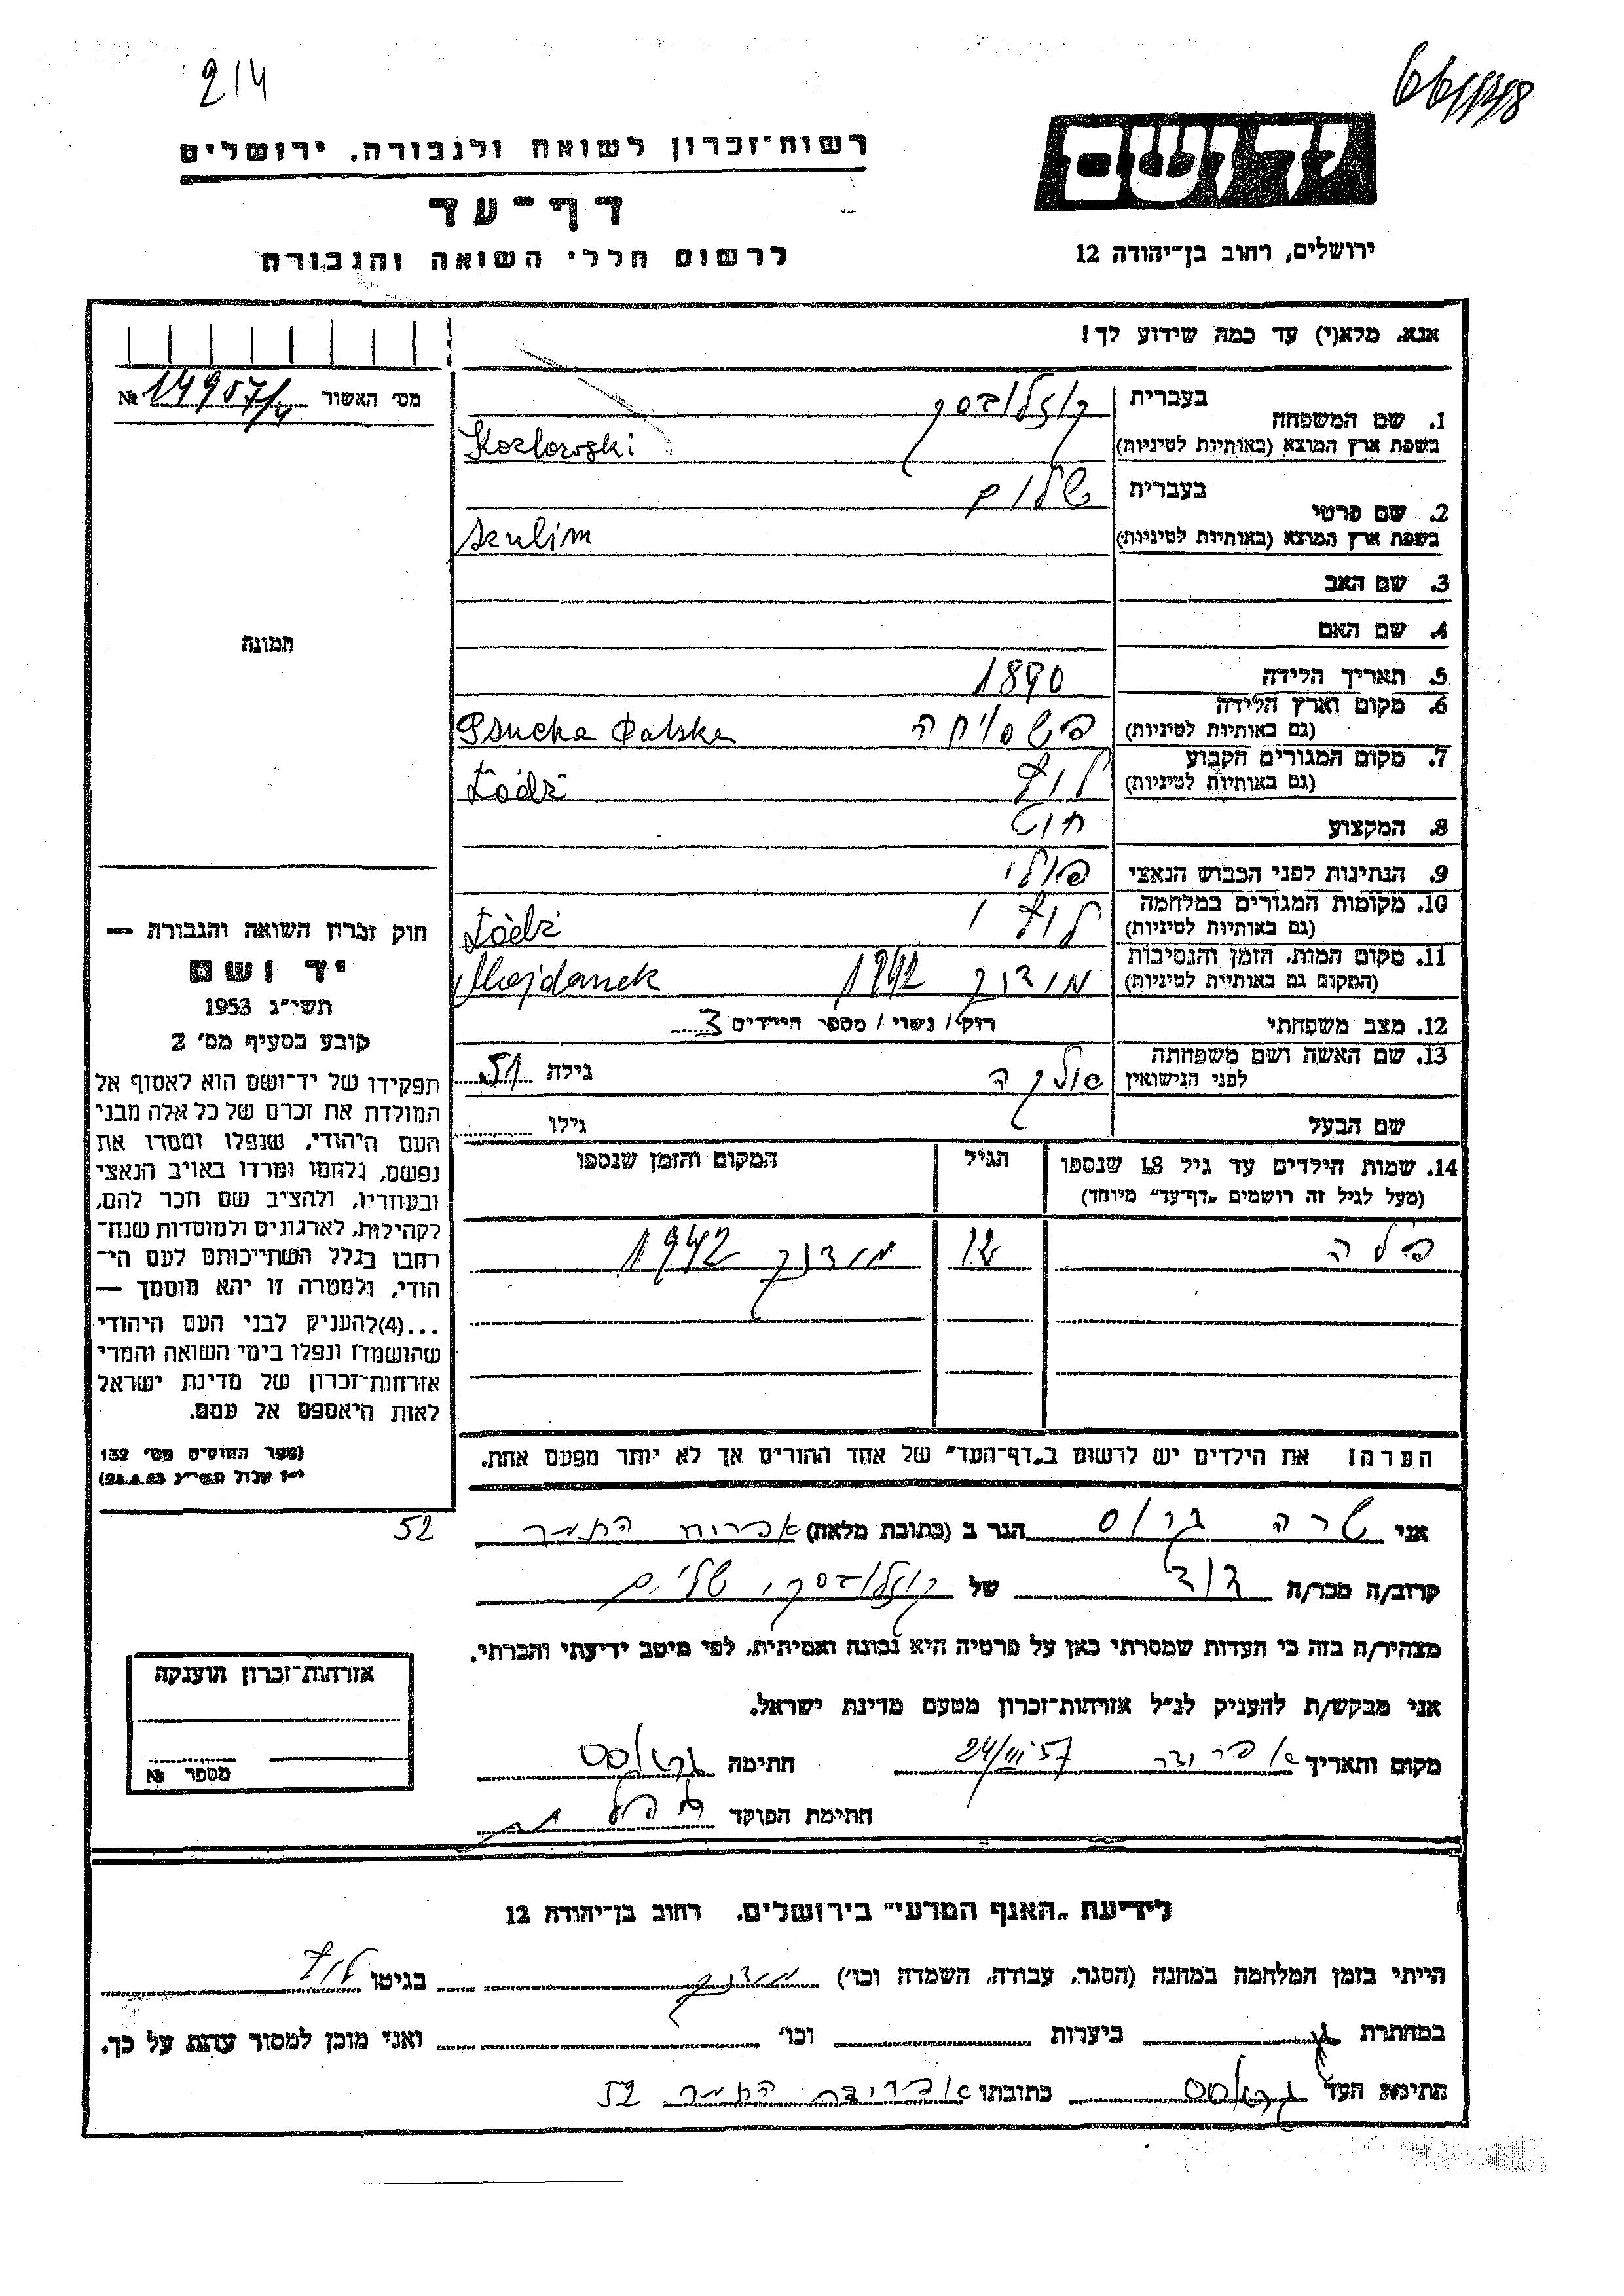 214
רשות־זכרון לשואה ולגבורה, ירושלים
דף־עד
לרשום חללי השואה והגבורה
יד ושם
ירושלים, רחוב בן־יהודה 12
אנא, מלא(י) עד כמה שידוע לך!
מס' האשור № 14957/4
1. שם המשפחה בעברית קוזלובסקי
בשפת ארץ המוצא (באותיות לטיניות) Kozlowski
2. שם פרטי בעברית שלום
בשפת ארץ המוצא (באותיות לטיניות) Szulim
3. שם האב
4. שם האם
תמונה
5. תאריך הלידה 1890
6. מקום וארץ הלידה (גם באותיות לטיניות) פשסויחה Psucha Polska
7. מקום המגורים הקבוע (גם באותיות לטיניות) לודז Łódź
8. המקצוע
9. הנתינות לפני הכבוש הנאצי פולני
10. מקומות המגורים במלחמה (גם באותיות לטיניות) לודז Łódź
11. מקום המות, הזמן והנסיבות (המקום גם באותיות לטיניות) מידנק 1942 Majdanek
12. מצב משפחתי רוק / נשוי / מספר הילדים 3
13. שם האשה ושם משפחתה לפני הנישואין גילה 51
שם הבעל גילו
14. שמות הילדים עד גיל 18 שנספו (מעל לגיל זה רושמים „דף־עד" מיוחד) הגיל המקום והזמן שנספו
מידנק 1942
הערה! את הילדים יש לרשום ב„דף־העד" של אחד ההורים אך לא יותר מפעם אחת.
חוק זכרון השואה והגבורה —
יד ושם
תשי"ג 1953
קובע בסעיף מס' 2
תפקידו של יד־ושם הוא לאסוף אל
המולדת את זכרם של כל אלה מבני
העם היהודי, שנפלו ומסרו את
נפשם, נלחמו ומרדו באויב הנאצי
ובעוזריו, ולהציב שם וזכר להם,
לקהילות, לארגונים ולמוסדות שנח־
רבו בגלל השתייכותם לעם הי־
הודי, ולמטרה זו יהא מוסמך —
...(4) להעניק לבני העם היהודי
שהושמדו ונפלו בימי השואה והמרי
אזרחות־זכרון של מדינת ישראל
לאות היאספם אל עמם.
(ספר החוקים מס' 132
י"ז אלול תשי"ג 28.8.53)
אני שרה הגר ב (כתובת מלאה) התמר 52
קרוב/ה מכר/ה דוד של קוזלובסקי שלום
מצהיר/ה בזה כי העדות שמסרתי כאן על פרטיה היא נכונה ואמיתית, לפי מיטב ידיעתי והכרתי.
אני מבקש/ת להעניק לנ"ל אזרחות־זכרון מטעם מדינת ישראל.
מקום ותאריך 24/III 57 חתימה
חתימת הפוקד
אזרחות־זכרון הוענקה
מספר №
לידיעת „האגף המדעי" בירושלים, רחוב בן־יהודה 12
הייתי בזמן המלחמה במחנה (הסגר, עבודה, השמדה וכו') מידנק בגיטו לודז
במחתרת ביערות וכו' ואני מוכן למסור עדות על כך.
חתימת העד כתובתו התמר 52